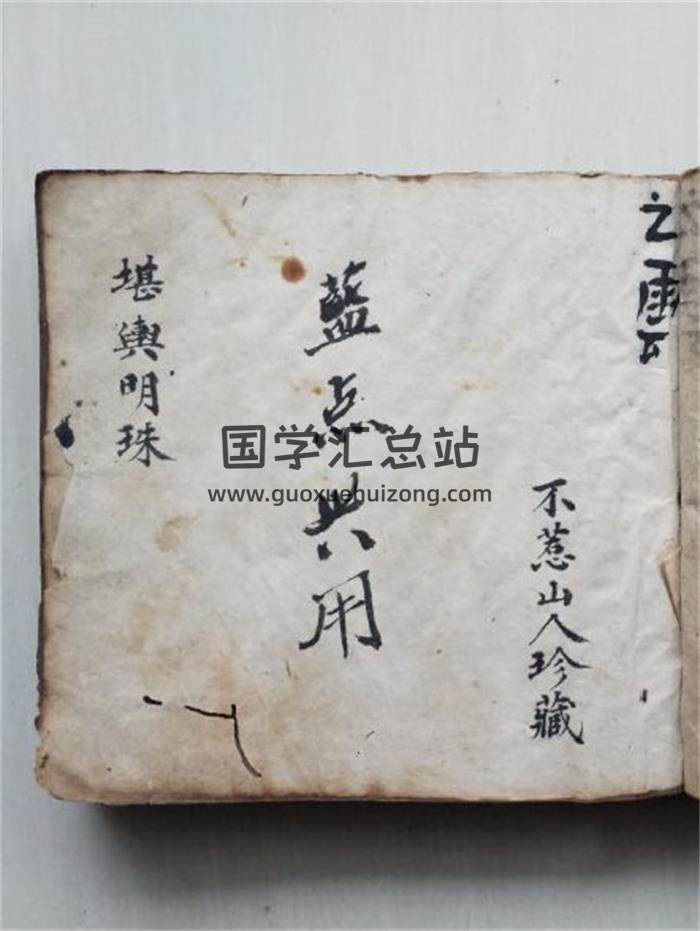 不惹山人珍藏
藍点共用
堪輿明珠
国学汇总站
www.guoxuehuizong.com